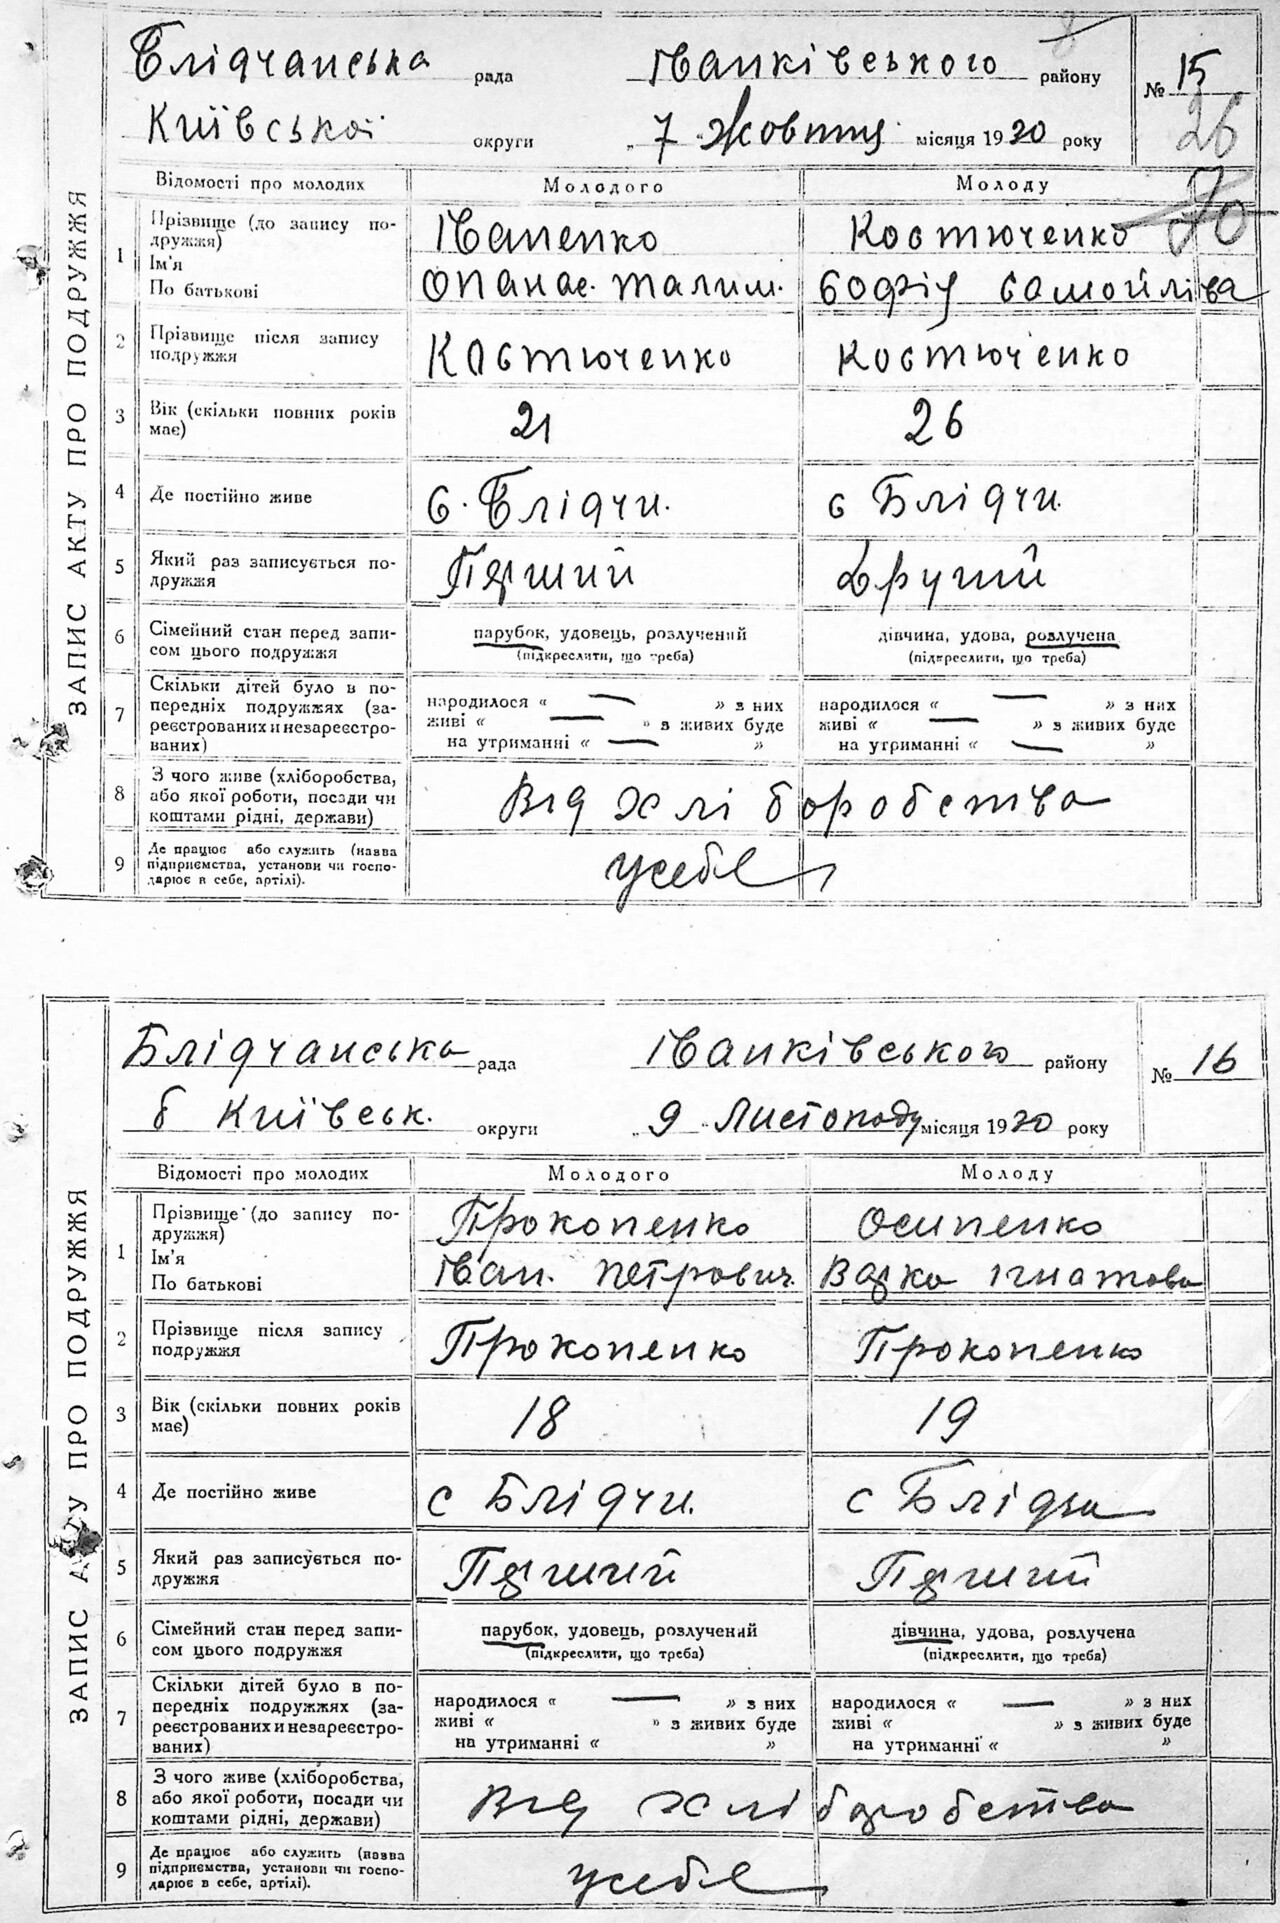 Блідчанська рада Іванківського району № 15
Київської округи „ 7 " Жовтня місяця 1930 року 26
70
ЗАПИС АКТУ ПРО ПОДРУЖЖЯ
Відомості про молодих Молодого Молоду
1 Прізвище (до запису по-
дружжя) Іваненко Костюченко
Ім'я
По батькові Опанас. Талим. Софія Самойлівa
2 Прізвище після запису
подружжя Костюченко Костюченко
3 Вік (скільки повних років
має) 21 26
4 Де постійно живе с. Блідчи. с Блідчи.
5 Який раз записується по-
дружжя Перший Другий
6 Сімейний стан перед запи-
сом цього подружжя парубок, удовець, розлучений дівчина, удова, розлучена
(підкреслити, що треба) (підкреслити, що треба)
7 Скільки дітей було в по-
передніх подружжях (за-
реєстрованих и незареєстро-
ваних)
народилося « — » з них народилося « — » з них
живі « — » з живих буде живі « — » з живих буде
на утриманні « — » на утриманні « — »
8 З чого живе (хліборобства,
або якої роботи, посади чи
коштами рідні, держави) Від хліборобства
9 Де працює або служить (назва
підприємства, установи чи госпо-
дарює в себе, артілі). усебе
Блідчанська рада Іванківського району № 16
б Київськ. округи „ 9 " Листопаду місяця 1930 року
ЗАПИС АКТУ ПРО ПОДРУЖЖЯ
Відомості про молодих Молодого Молоду
1 Прізвище (до запису по-
дружжя) Прокопенко Осипенко
Ім'я
По батькові Іван. Петрович. Варка Ігнатова
2 Прізвище після запису
подружжя Прокопенко Прокопенко
3 Вік (скільки повних років
має) 18 19
4 Де постійно живе с Блідчи. с Блідчи
5 Який раз записується по-
дружжя Перший Перший
6 Сімейний стан перед запи-
сом цього подружжя парубок, удовець, розлучений дівчина, удова, розлучена
(підкреслити, що треба) (підкреслити, що треба)
7 Скільки дітей було в по-
передніх подружжях (за-
реєстрованих и незареєстро-
ваних)
народилося « — » з них народилося « — » з них
живі « » з живих буде живі « » з живих буде
на утриманні « » на утриманні « »
8 З чого живе (хліборобства,
або якої роботи, посади чи
коштами рідні, держави) Від хліборобства
9 Де працює або служить (назва
підприємства, установи чи госпо-
дарює в себе, артілі). усебе